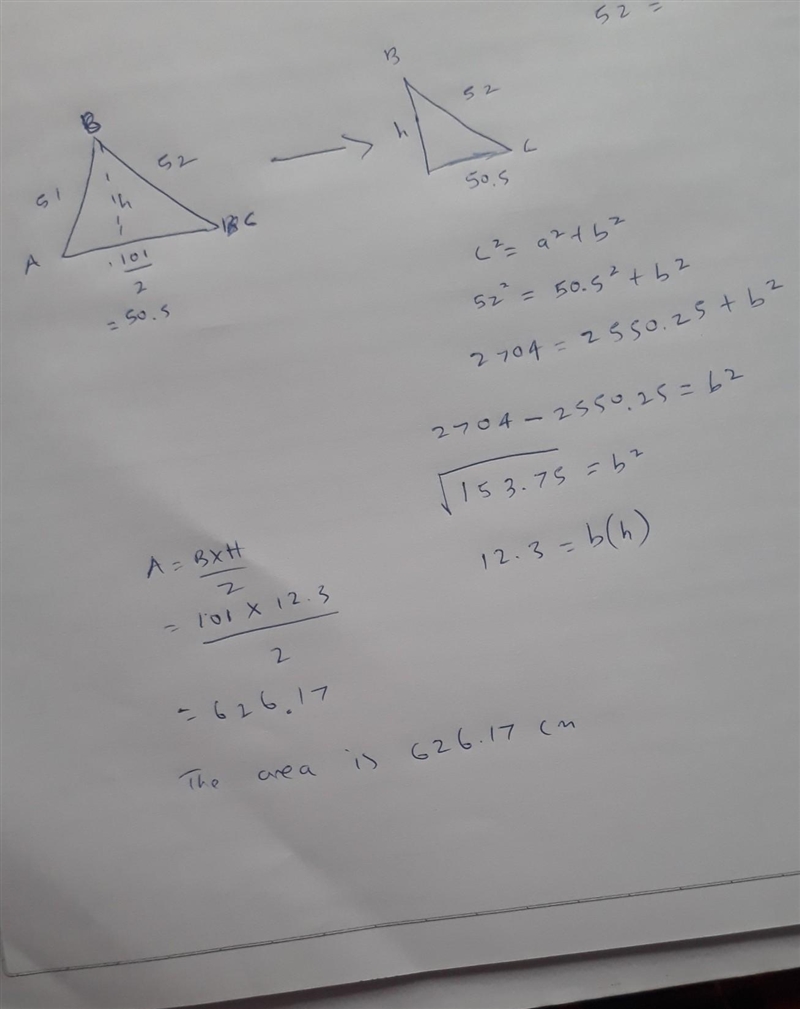 52 =
B
51
52
h
A
C
101
2
= 50.5
B
52
h
C
50.5
c² = a² + b²
52² = 50.5² + b²
2704 = 2550.25 + b²
2704 - 2550.25 = b²
√153.75 = b²
12.3 = b(h)
A = B×H
2
= 101 × 12.3
2
= 626.17
The area is 626.17 cm